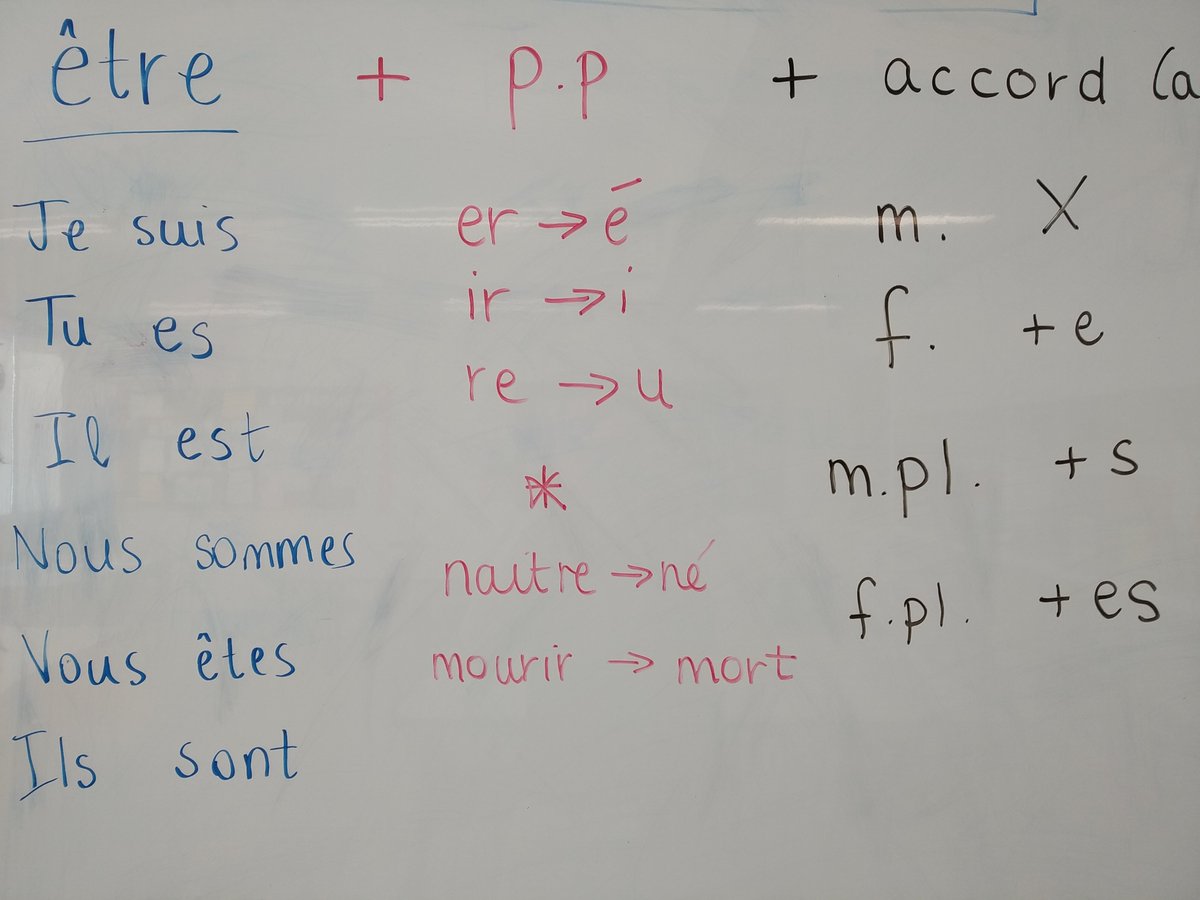 être + p.p + accord (a
Je suis
Tu es
Il est
Nous sommes
Vous êtes
Ils sont
er → é
ir → i
re → u
*
naitre → né
mourir → mort
m. X
f. + e
m.pl. + s
f.pl. + es